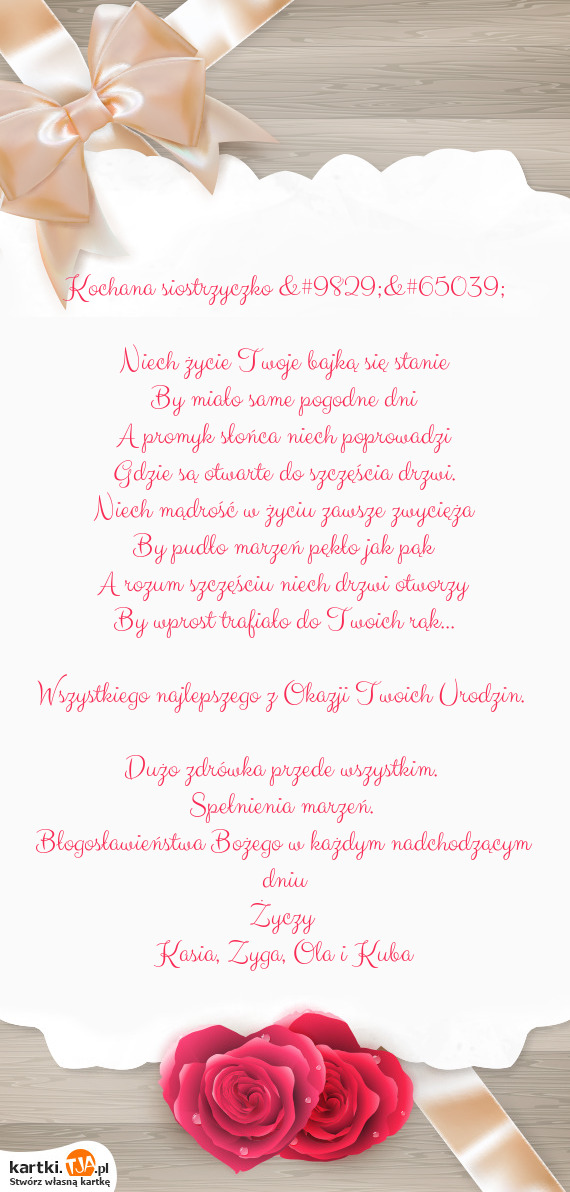 Kochana siostrzyczko &#9829;&#65039;
Niech życie Twoje bajką się stanie
By miało same pogodne dni
A promyk słońca niech poprowadzi
Gdzie są otwarte do szczęścia drzwi.
Niech mądrość w życiu zawsze zwycięża
By pudło marzeń pękło jak pąk
A rozum szczęściu niech drzwi otworzy
By wprost trafiało do Twoich rąk...
Wszystkiego najlepszego z Okazji Twoich Urodzin.
Dużo zdrówka przede wszystkim.
Spełnienia marzeń.
Błogosławieństwa Bożego w każdym nadchodzącym
dniu
Życzy
Kasia, Zyga, Ola i Kuba
kartki.TJA.pl
Stwórz własną kartkę